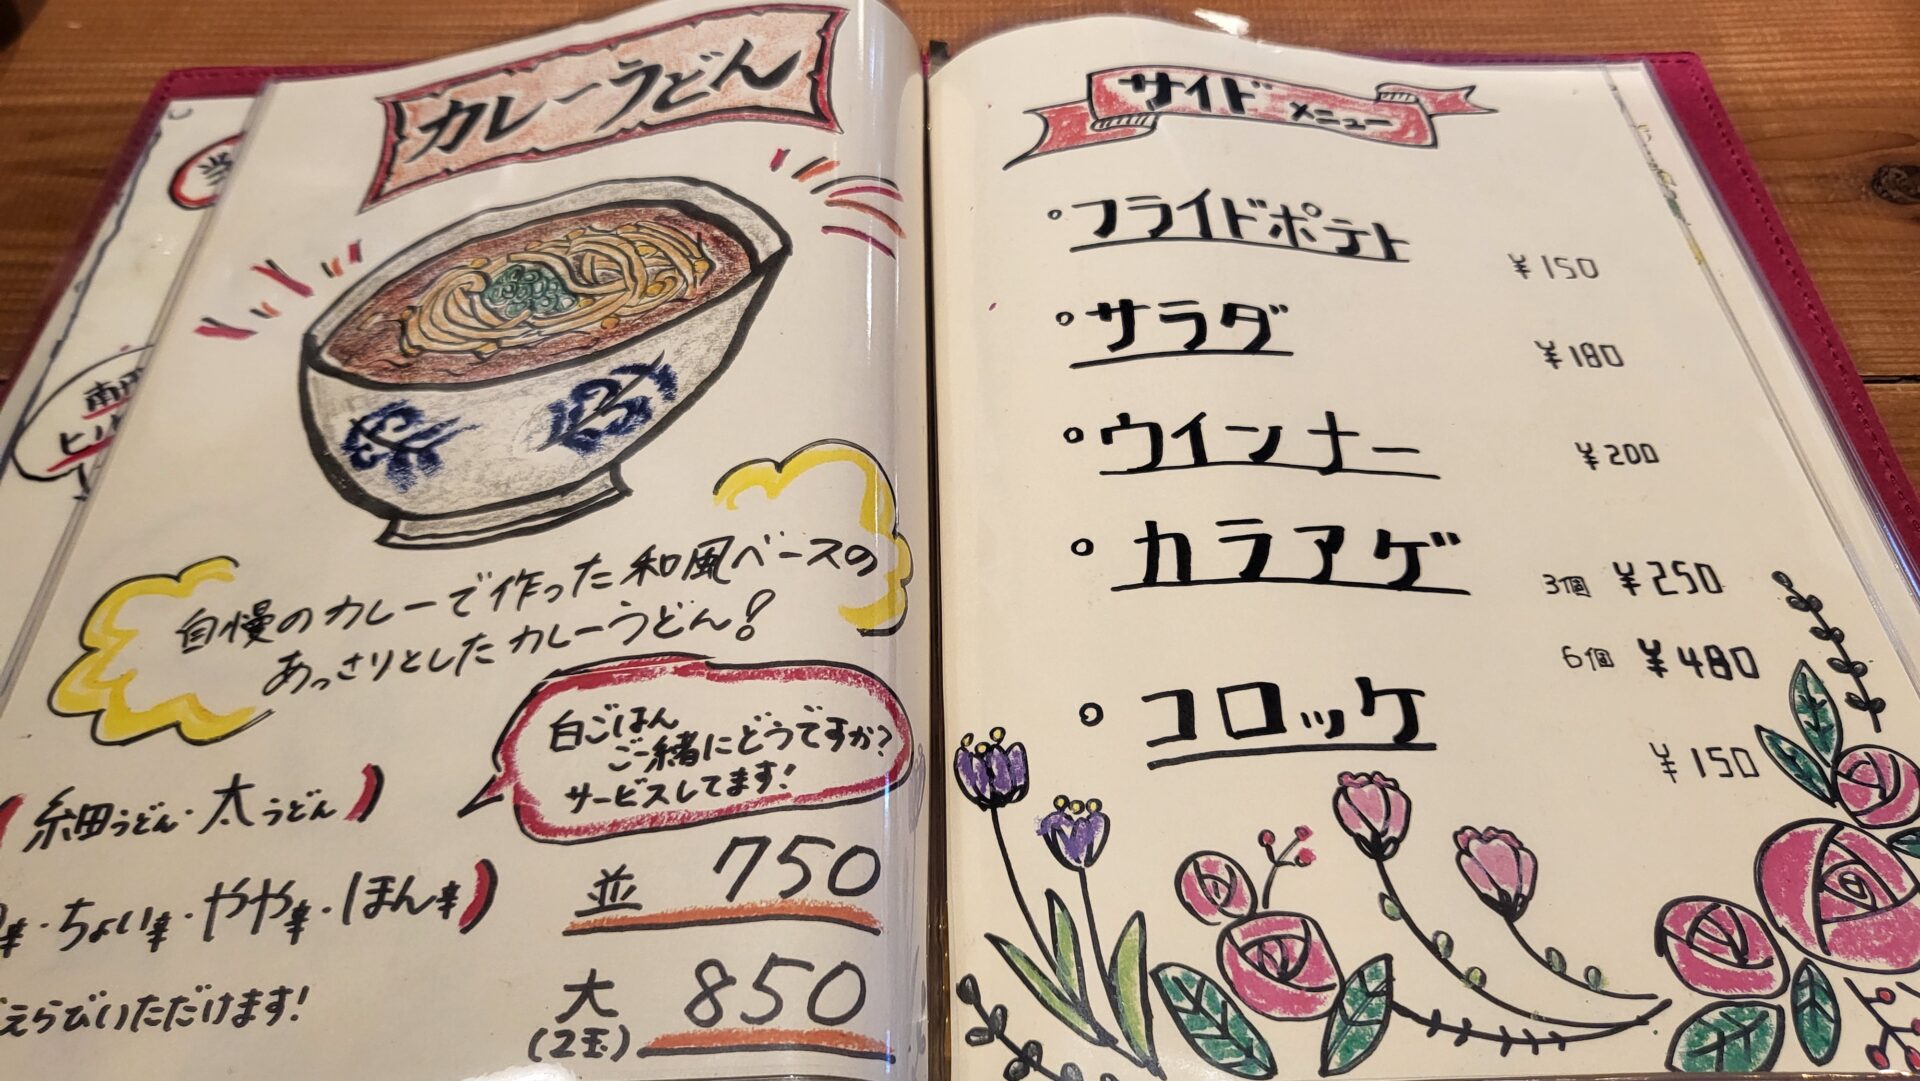 カレーうどん
自慢のカレーで作った和風ベースの
あっさりとしたカレーうどん!
白ごはん
ご一緒にどうですか?
サービスしてます!
細うどん・太うどん
辛・ちょい辛・やや辛・ほん辛
えらびいただけます!
並 750
大 850
(2玉)
サイドメニュー
・フライドポテト ¥150
・サラダ ¥180
・ウインナー ¥200
・カラアゲ 3個 ¥250
6個 ¥480
・コロッケ ¥150